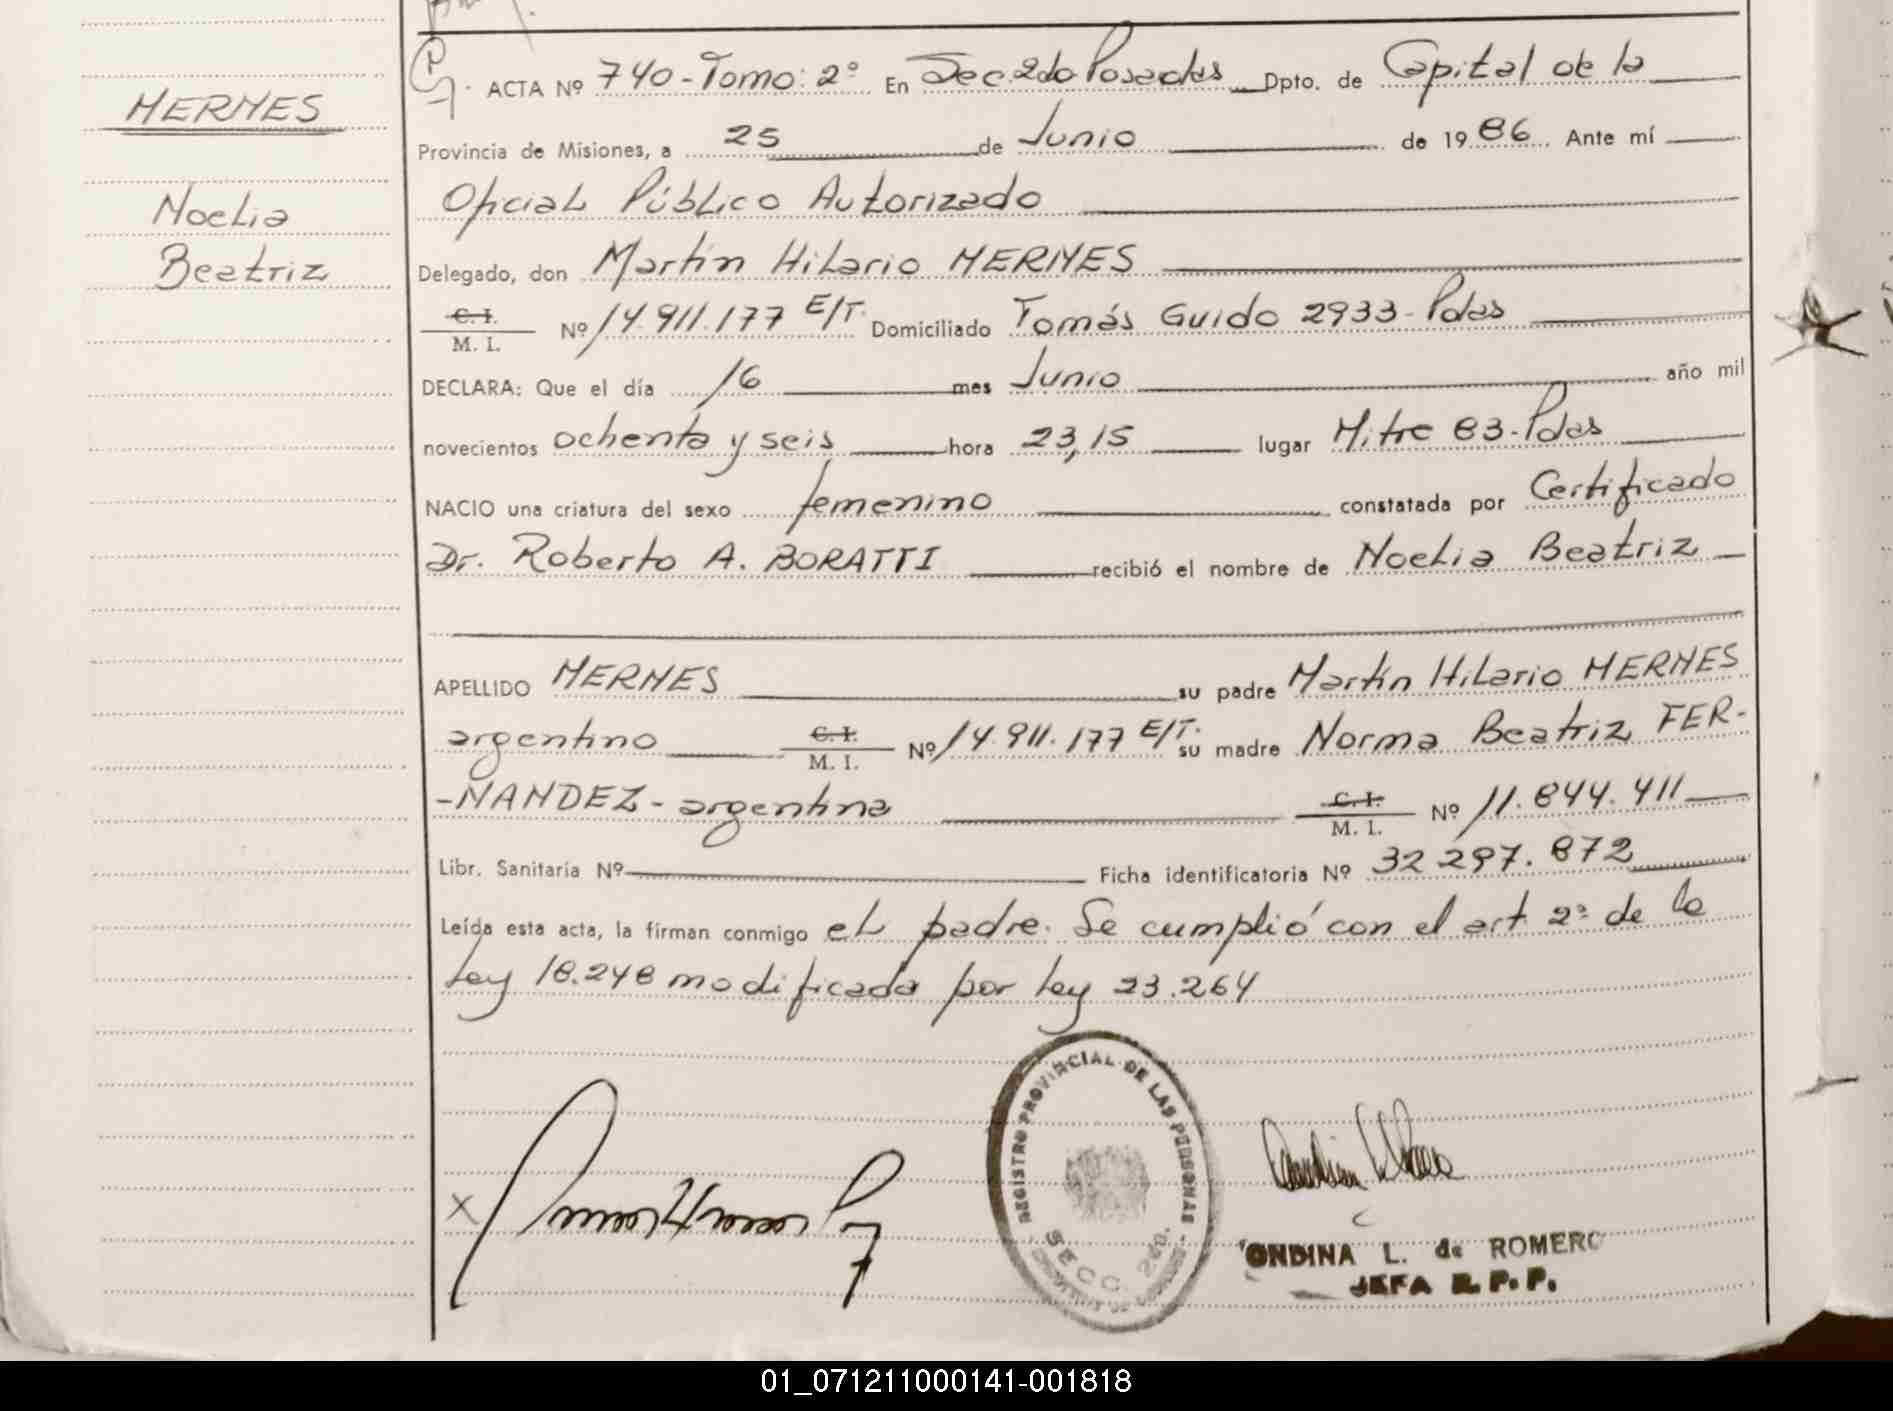 HERMES
Noelia
Beatriz
ACTA Nº 740-Tomo: 2º En Secc. 2do Posadas Dpto. de Capital de la
Provincia de Misiones, a 25 de Junio de 1986 Ante mí
Oficial Público Autorizado
Delegado, don Martín Hilario HERMES
C. I.
M. I. Nº 14.911.177 E/T. Domiciliado Tomás Guido 2933-Pdas
DECLARA: Que el día 16 mes Junio año mil
novecientos ochenta y seis hora 23,15 lugar Mitre 83-Pdas
NACIO una criatura del sexo femenino constatada por Certificado
Dr. Roberto A. BORATTI recibió el nombre de Noelia Beatriz
APELLIDO HERMES su padre Martín Hilario HERMES
argentino C. I.
M. I. Nº 14.911.177 E/T. su madre Norma Beatriz FER-
-NANDEZ- argentina C. I.
M. I. Nº 11.844.411
Libr. Sanitaria Nº Ficha identificatoria Nº 32 297.872
Leída esta acta, la firman conmigo el padre. Se cumplió con el art 2º de la
Ley 18.248 modificada por ley 23.264
REGISTRO PROVINCIAL DE LAS PERSONAS
SECC. 2da.
X
ONDINA L. de ROMERO
JEFA R. P. P.
01_071211000141-001818